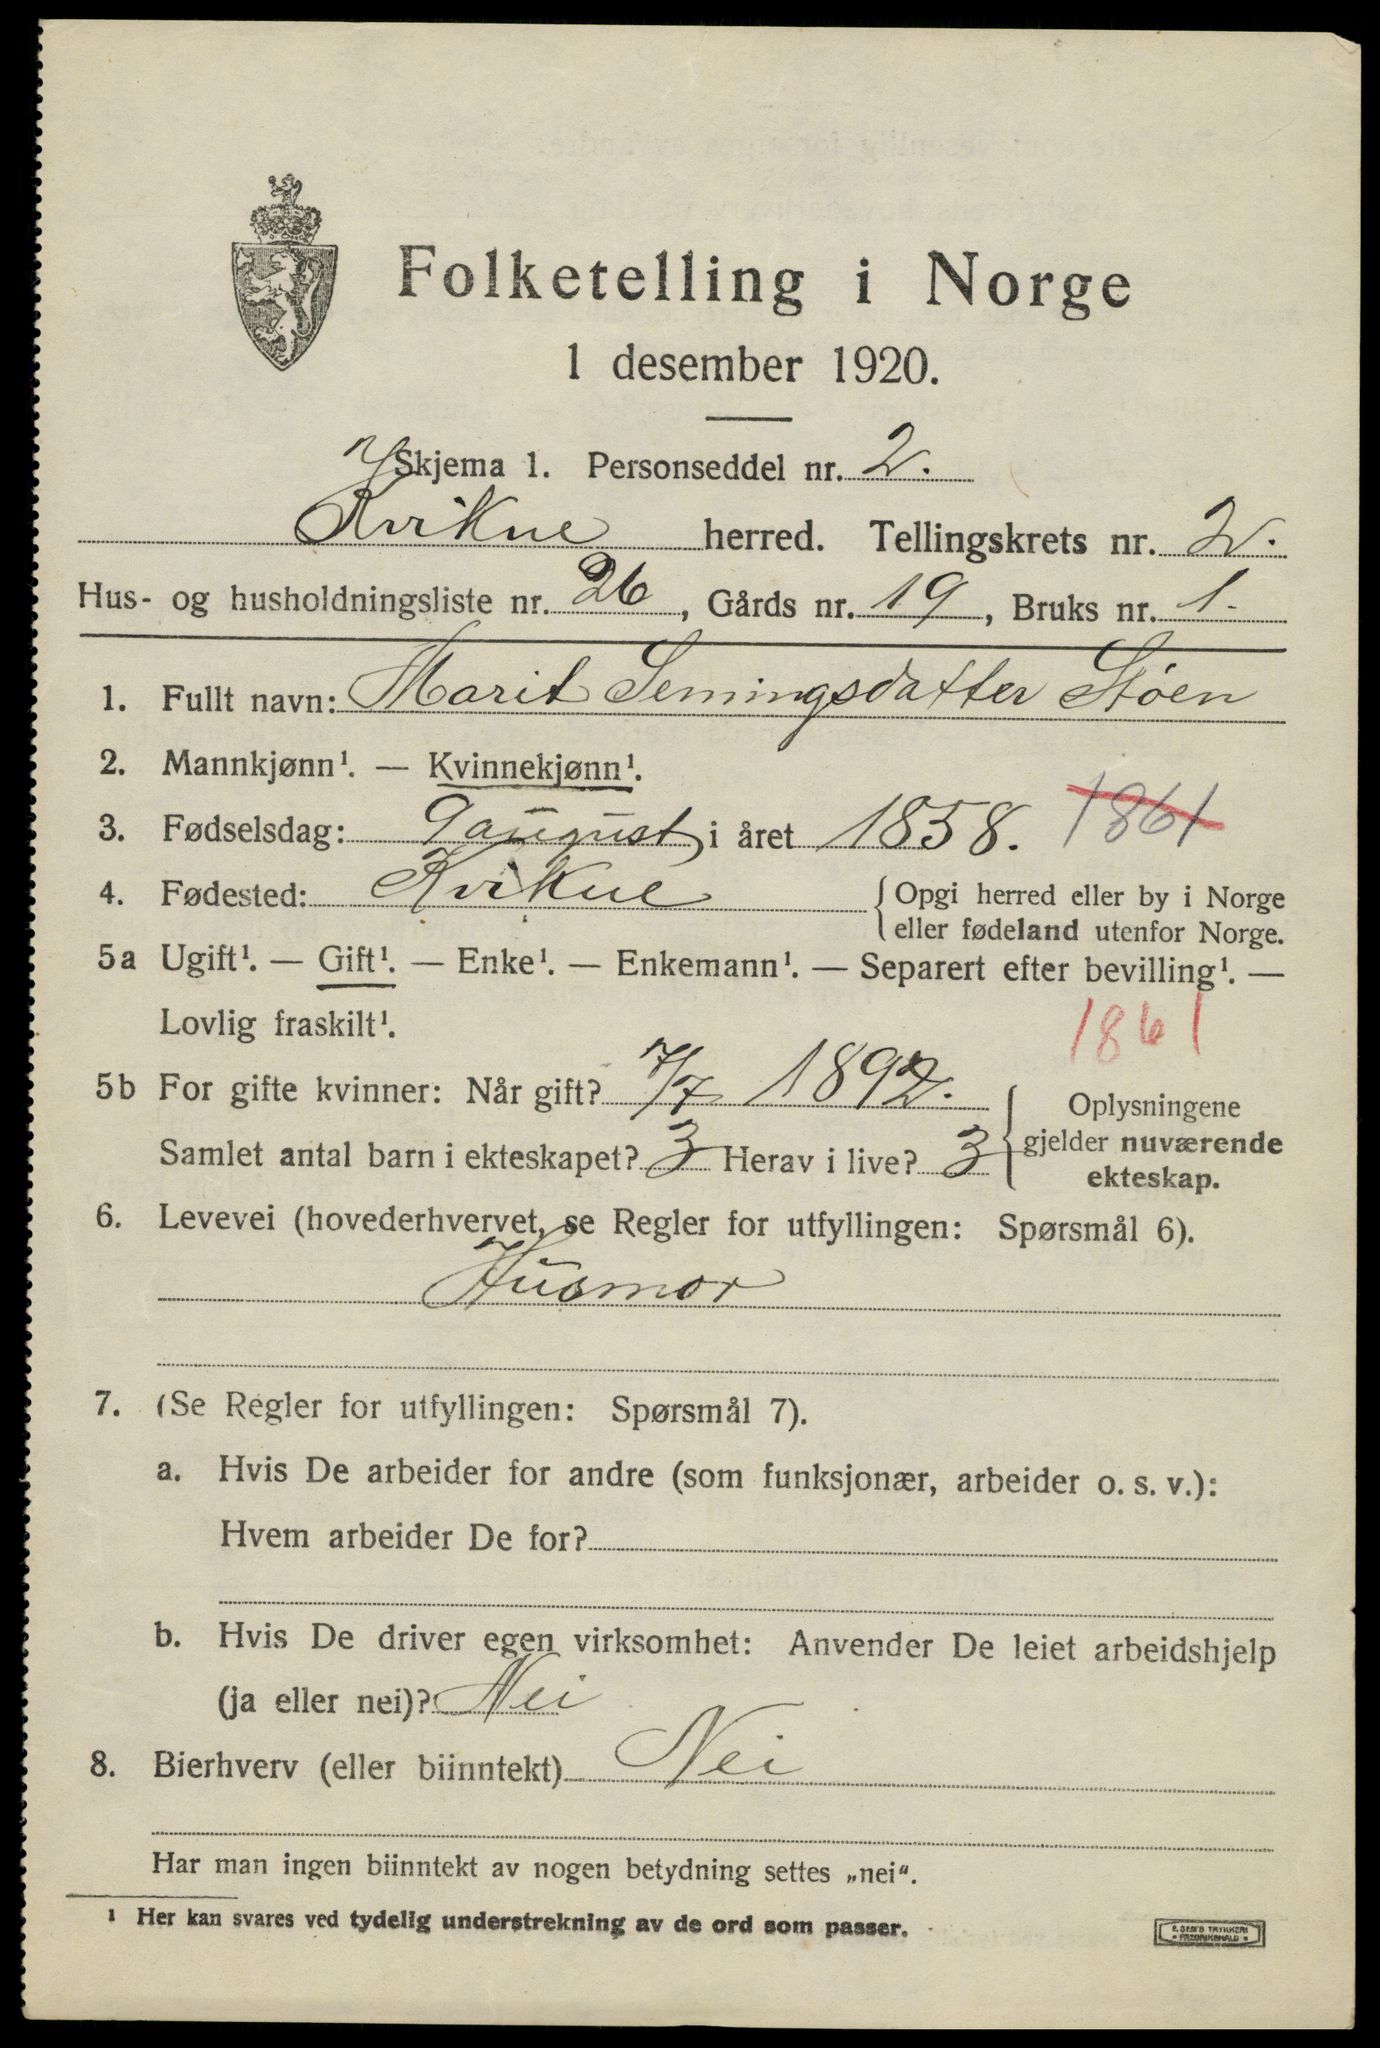 Folketelling i Norge
1 desember 1920.
Skjema 1. Personseddel nr. 2.
Kvikne herred. Tellingskrets nr. 2.
Hus- og husholdningsliste nr. 26, Gårds nr. 19, Bruks nr. 1.
1. Fullt navn: Marit Semingsdatter Støen
2. Mannkjønn¹. — Kvinnekjønn¹.
3. Fødselsdag: 9 august i året 1858. 1861
4. Fødested: Kvikne {Opgi herred eller by i Norge
eller fødeland utenfor Norge.
5a Ugift¹. — Gift¹. — Enke¹. — Enkemann¹. — Separert efter bevilling¹. —
Lovlig fraskilt¹. 1861
5b For gifte kvinner: Når gift? 7/7 1892. { Oplysningene
Samlet antal barn i ekteskapet? 3 Herav i live? 3 gjelder nuværende
ekteskap.
6. Levevei (hovederhvervet, se Regler for utfyllingen: Spørsmål 6).
Husmor
7. (Se Regler for utfyllingen: Spørsmål 7).
a. Hvis De arbeider for andre (som funksjonær, arbeider o. s. v.):
Hvem arbeider De for?
b. Hvis De driver egen virksomhet: Anvender De leiet arbeidshjelp
(ja eller nei)? Nei
8. Bierhverv (eller biinntekt) Nei
Har man ingen biinntekt av nogen betydning settes „nei“.
¹ Her kan svares ved tydelig understrekning av de ord som passer.
E. SEM'S TRYKKERI
• FREDRIKSHALD •